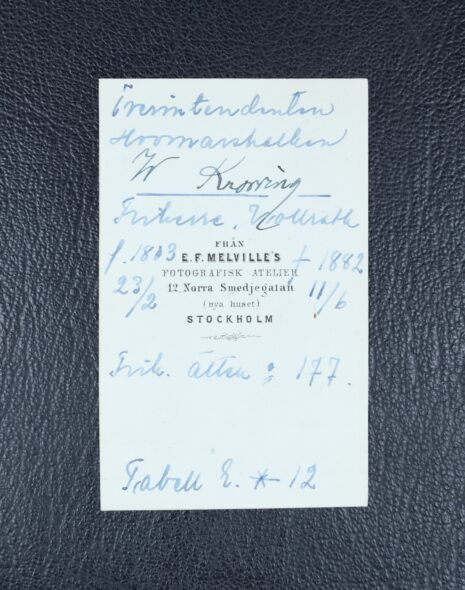 Överintendenten
Hovmarskalken
W Knorring
Friherre, Vollrath
FRÅN
f. 1803 E.F. MELVILLE'S † 1882
FOTOGRAFISK ATELIER
23/2 12 Norra Smedjegatan 11/6
(nya huset)
STOCKHOLM
Frih. ätten : 177.
Tabell E. * 12